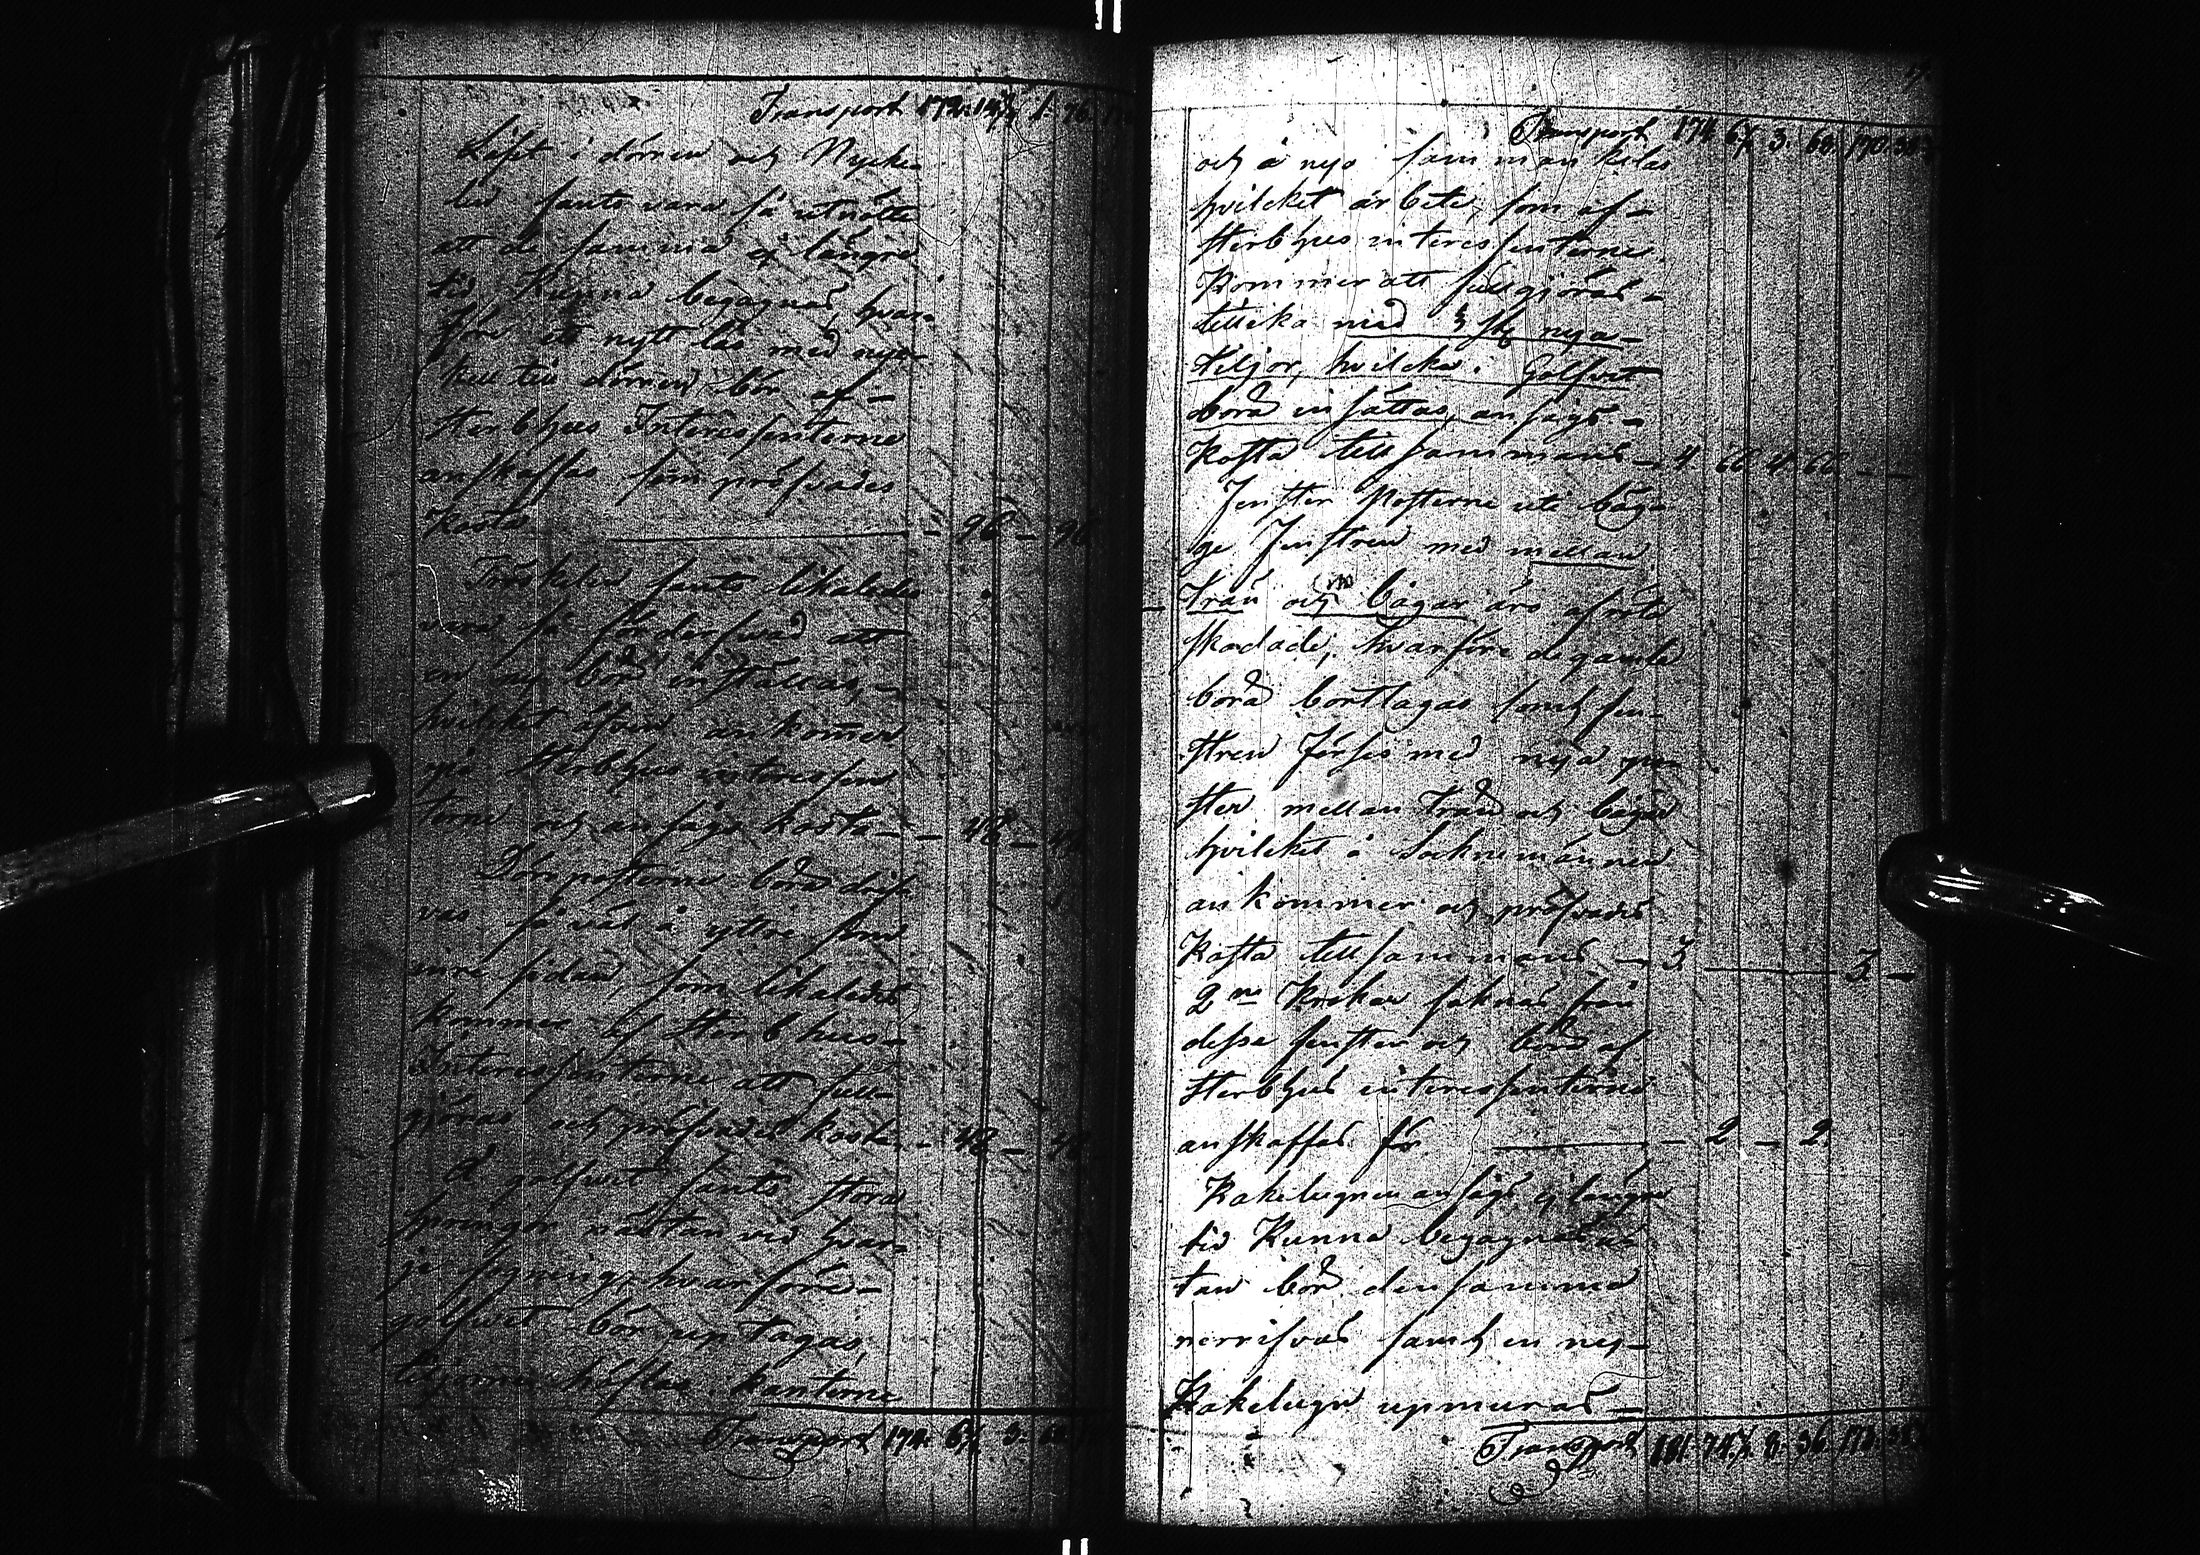 Transport 172. 14½ 1. 76.
Låset i dörren och Nycke-
len fants vara så utnötte
att de samma ej längre
tid Kunna begagnas, hvar-
före ett nytt lås med nyc-
kel till dörren bör af -
Sterbhus Interessenterne
anskaffas som pröfvades
Kosta - 96 - 96
Tröskelen fants likaledes
vara så förderfvad att
en ny bör inställas, -
hvilcket äfven ankommer
på Sterbhus interessen
terne och ansågs kosta - - 48 - 48
Dörrposterne böra drif-
vas så väl å yttre som
inre sidan, som likaledes
kommer af Sterbhus-
Interessenterne att full-
göras och pröfvades kosta - 48 - 48
å golfvet fants stora
springor nästan vid hvar-
je fogning, hvarföre -
golfvet bör uptagas,
tiljerne höflas kanterne
Transport 174. 6½ 3. 68
Transport 174 6½ 3. 68. 170. 38½
och å nyo samman kilas
hvilcket arbete, som af -
Sterbhus interessenterne
Kommer att fullgöras -
tillika med 3 st nya -
tiljor, hvilcka. Golfvet
böra insättas, ansågs -
Kosta tillsammans - 4 60 4 60 - -
Fenster Posterne uti båg-
ge Fenstren med mellan
Trän och bågar äro af röta
skadade, hvarföre de gamle
böra borttagas samt fen-
stren förses med nya po-
ster mellan Trän och bågar
hvilcket å Sochnemännen
ankommer och pröfvades
Kosta tillsammans - 3 - 3 -
2ne Krokar saknas från
desse fenster och böra af
Sterbhus interessenterne
anskaffas för - 2 - 2
Kakelugnen ansågs ej längre
tid Kunna begagnas u-
tan bör densamma
nerrifvas samt en ny -
Kakelugn upmuras -
Transport 181. 74½ 8. 36. 173. 38½